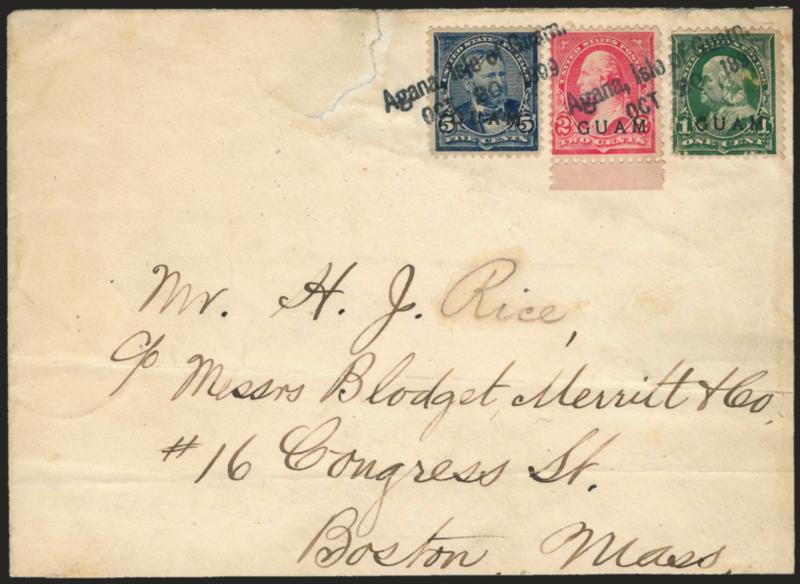 Agana, Isle of Guam.
OCT 20 1899
Agana, Isle of Guam.
OCT 20 189
UNITED STATES POSTAGE
GUAM
5 5
FIVE CENTS
UNITED STATES POSTAGE
GUAM
2
TWO CENTS
GUAM
1 1
ONE CENT
Mr. H. J. Rice,
c/o Messrs Blodget, Merritt & Co,
#16 Congress St.
Boston, Mass.